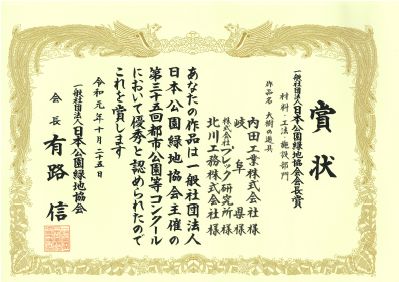 賞状
一般社団法人日本公園緑地協会会長賞
材料・工法・施設部門
作品名 大樹の遊具
内田工業株式会社 様
岐阜県 様
株式会社プレック研究所 様
北川工務株式会社 様
あなたの作品は一般社団法人
日本公園緑地協会主催の
第三十五回都市公園等コンクール
において優秀と認められたので
これを賞します
令和元年十月二十五日
一般社団法人日本公園緑地協会
会長 有路信